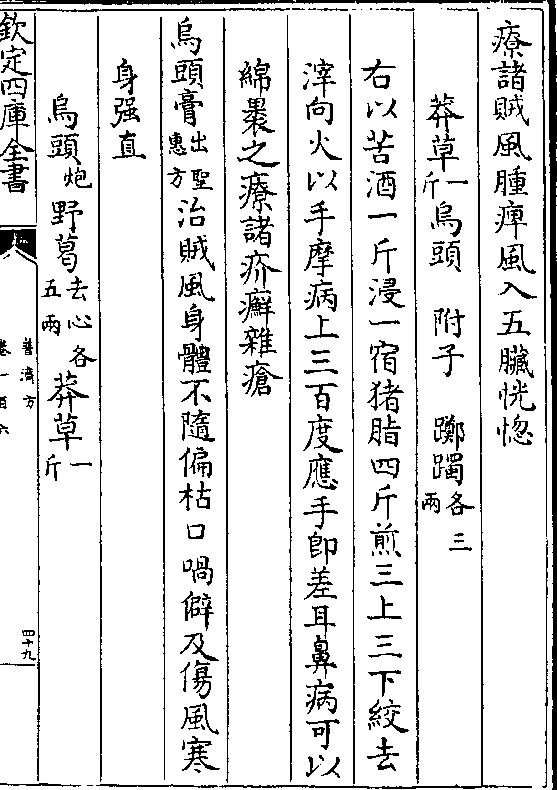 療諸賊風腫痺風入五臟恍惚
莽草一斤烏頭 附子 躑躅各三兩
右以苦酒一斤浸一宿猪脂四斤煎三上三下絞去
滓向火以手摩病上三百度應手即差耳鼻病可以
綿裹之療諸疥癬雜瘡
烏頭膏出聖惠方治賊風身體不隨偏枯口喎僻及傷風寒
身强直
烏頭炮野葛去心各五兩莽草一斤
欽定四庫全書
普濟方
卷一百六
四十九